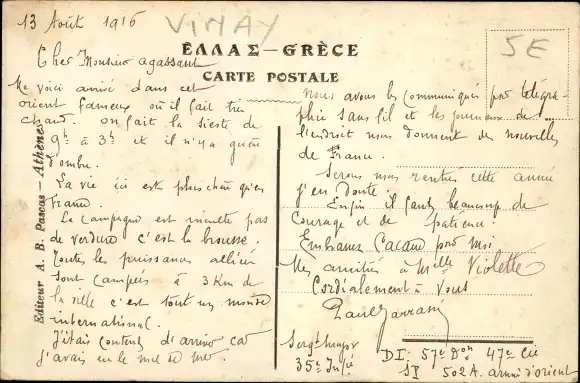 13 Août 1916
VINAY
5E
ΕΛΛΑΣ—GRÈCE
CARTE POSTALE
Editeur A. B. Pascas — Athènes
Cher Monsieur Agassant
Me voici arrivé dans cet
orient fameux où il fait très
chaud. on fait la sieste de
9h à 3h et il n'y a qu'en
l'ombre.
La vie ici est plus chère qu'en
France.
La campagne est inculte pas
de verdure c'est la brousse.
Toutes les puissances alliées
sont campées à 3 Km de
la ville c'est tout un monde
international.
J'étais content d'arriver car
j'avais eu le mal de mer.
Nous avons les communiqués par télégra-
phie sans fil et les journaux de
l'endroit nous donnent des nouvelles
de France.
Serons nous rentrés cette année
j'en doute.
Enfin il faut beaucoup de
courage et de patience.
Embrassez Cacaud pour moi
Mes amitiés à Melle Violette
Cordialement à vous
Paul
Sergt major
35e Infie
DI: 57e Don 47e Cie
SP 502A. armée d'orient